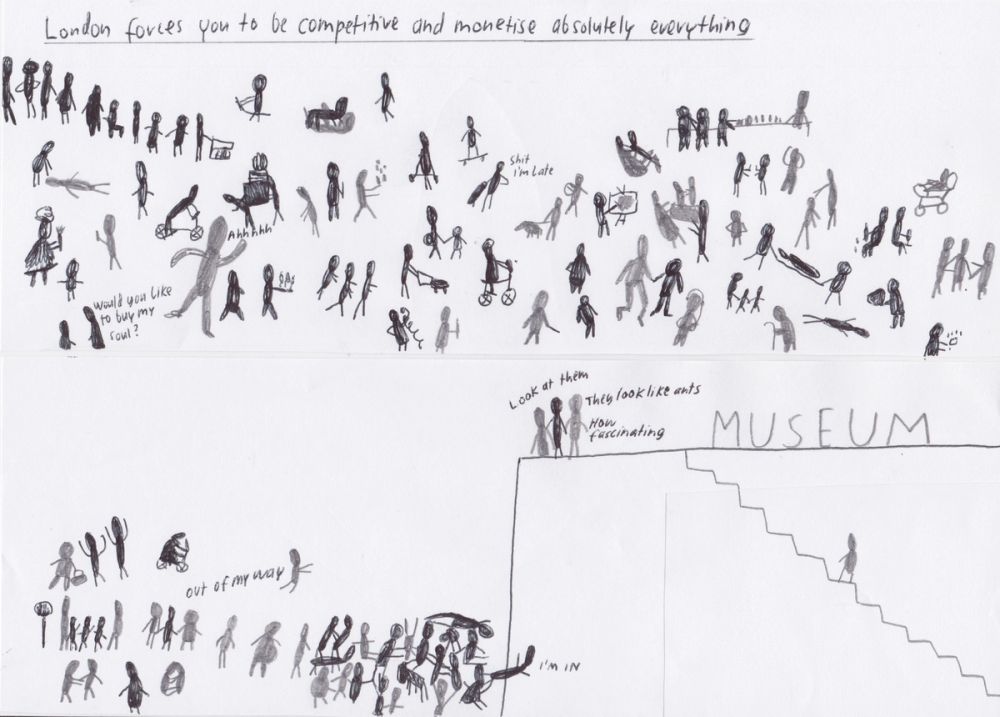 London forces you to be competitive and monetise absolutely everything
Shit
I'm late
Ahhhhh
would you like
to buy my
soul?
Look at them
They look like ants
How
fascinating
MUSEUM
out of my way
I'M IN